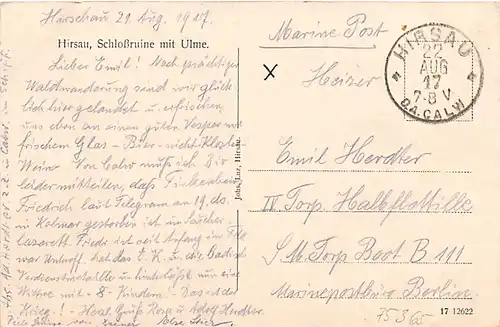 Hirschau 21 Aug. 1917.
Hirsau, Schloßruine mit Ulme.
Lieber Emil! Nach prächtiger
Waldwanderung sind wir glück
lich hier gelandet u. erfrischen
uns eben an einem guten Vesper mit
frischem Glas - Bier - nicht Kloster
Wein. Von Calw muß ich Dir
leider mitteilen, daß
Friedrich laut Telegram am 19. do.
in Kolmar gestorben ist im
lazarett Friedr. ist seit Anfang im Feld
war Unteroff. hat das E. K. u. die Badische
Verdienstmedaille u. hinterläßt nun eine
Witwe mit 8 Kindern! Das ist der
Krieg! - Herzl. Gruß Rosa u. Adolf Herdter.
Viele Grüße von
Joh. Lutz, Hirsau.
Marine Post
Heizer
X
HIRSAU
22
AUG
17
7-8 V
OA. CALW
Emil Herdter
IV Torp. Halbflottille
S. M. Torp Boot B 111
Marinepostbüro Berlin.
17 12622